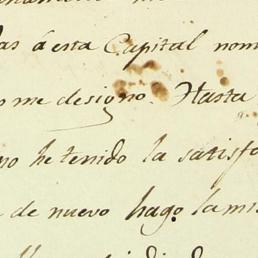 as á esta Capital nom
me designo. Hasta
no he tenido la satisf
de nuevo hago la mis